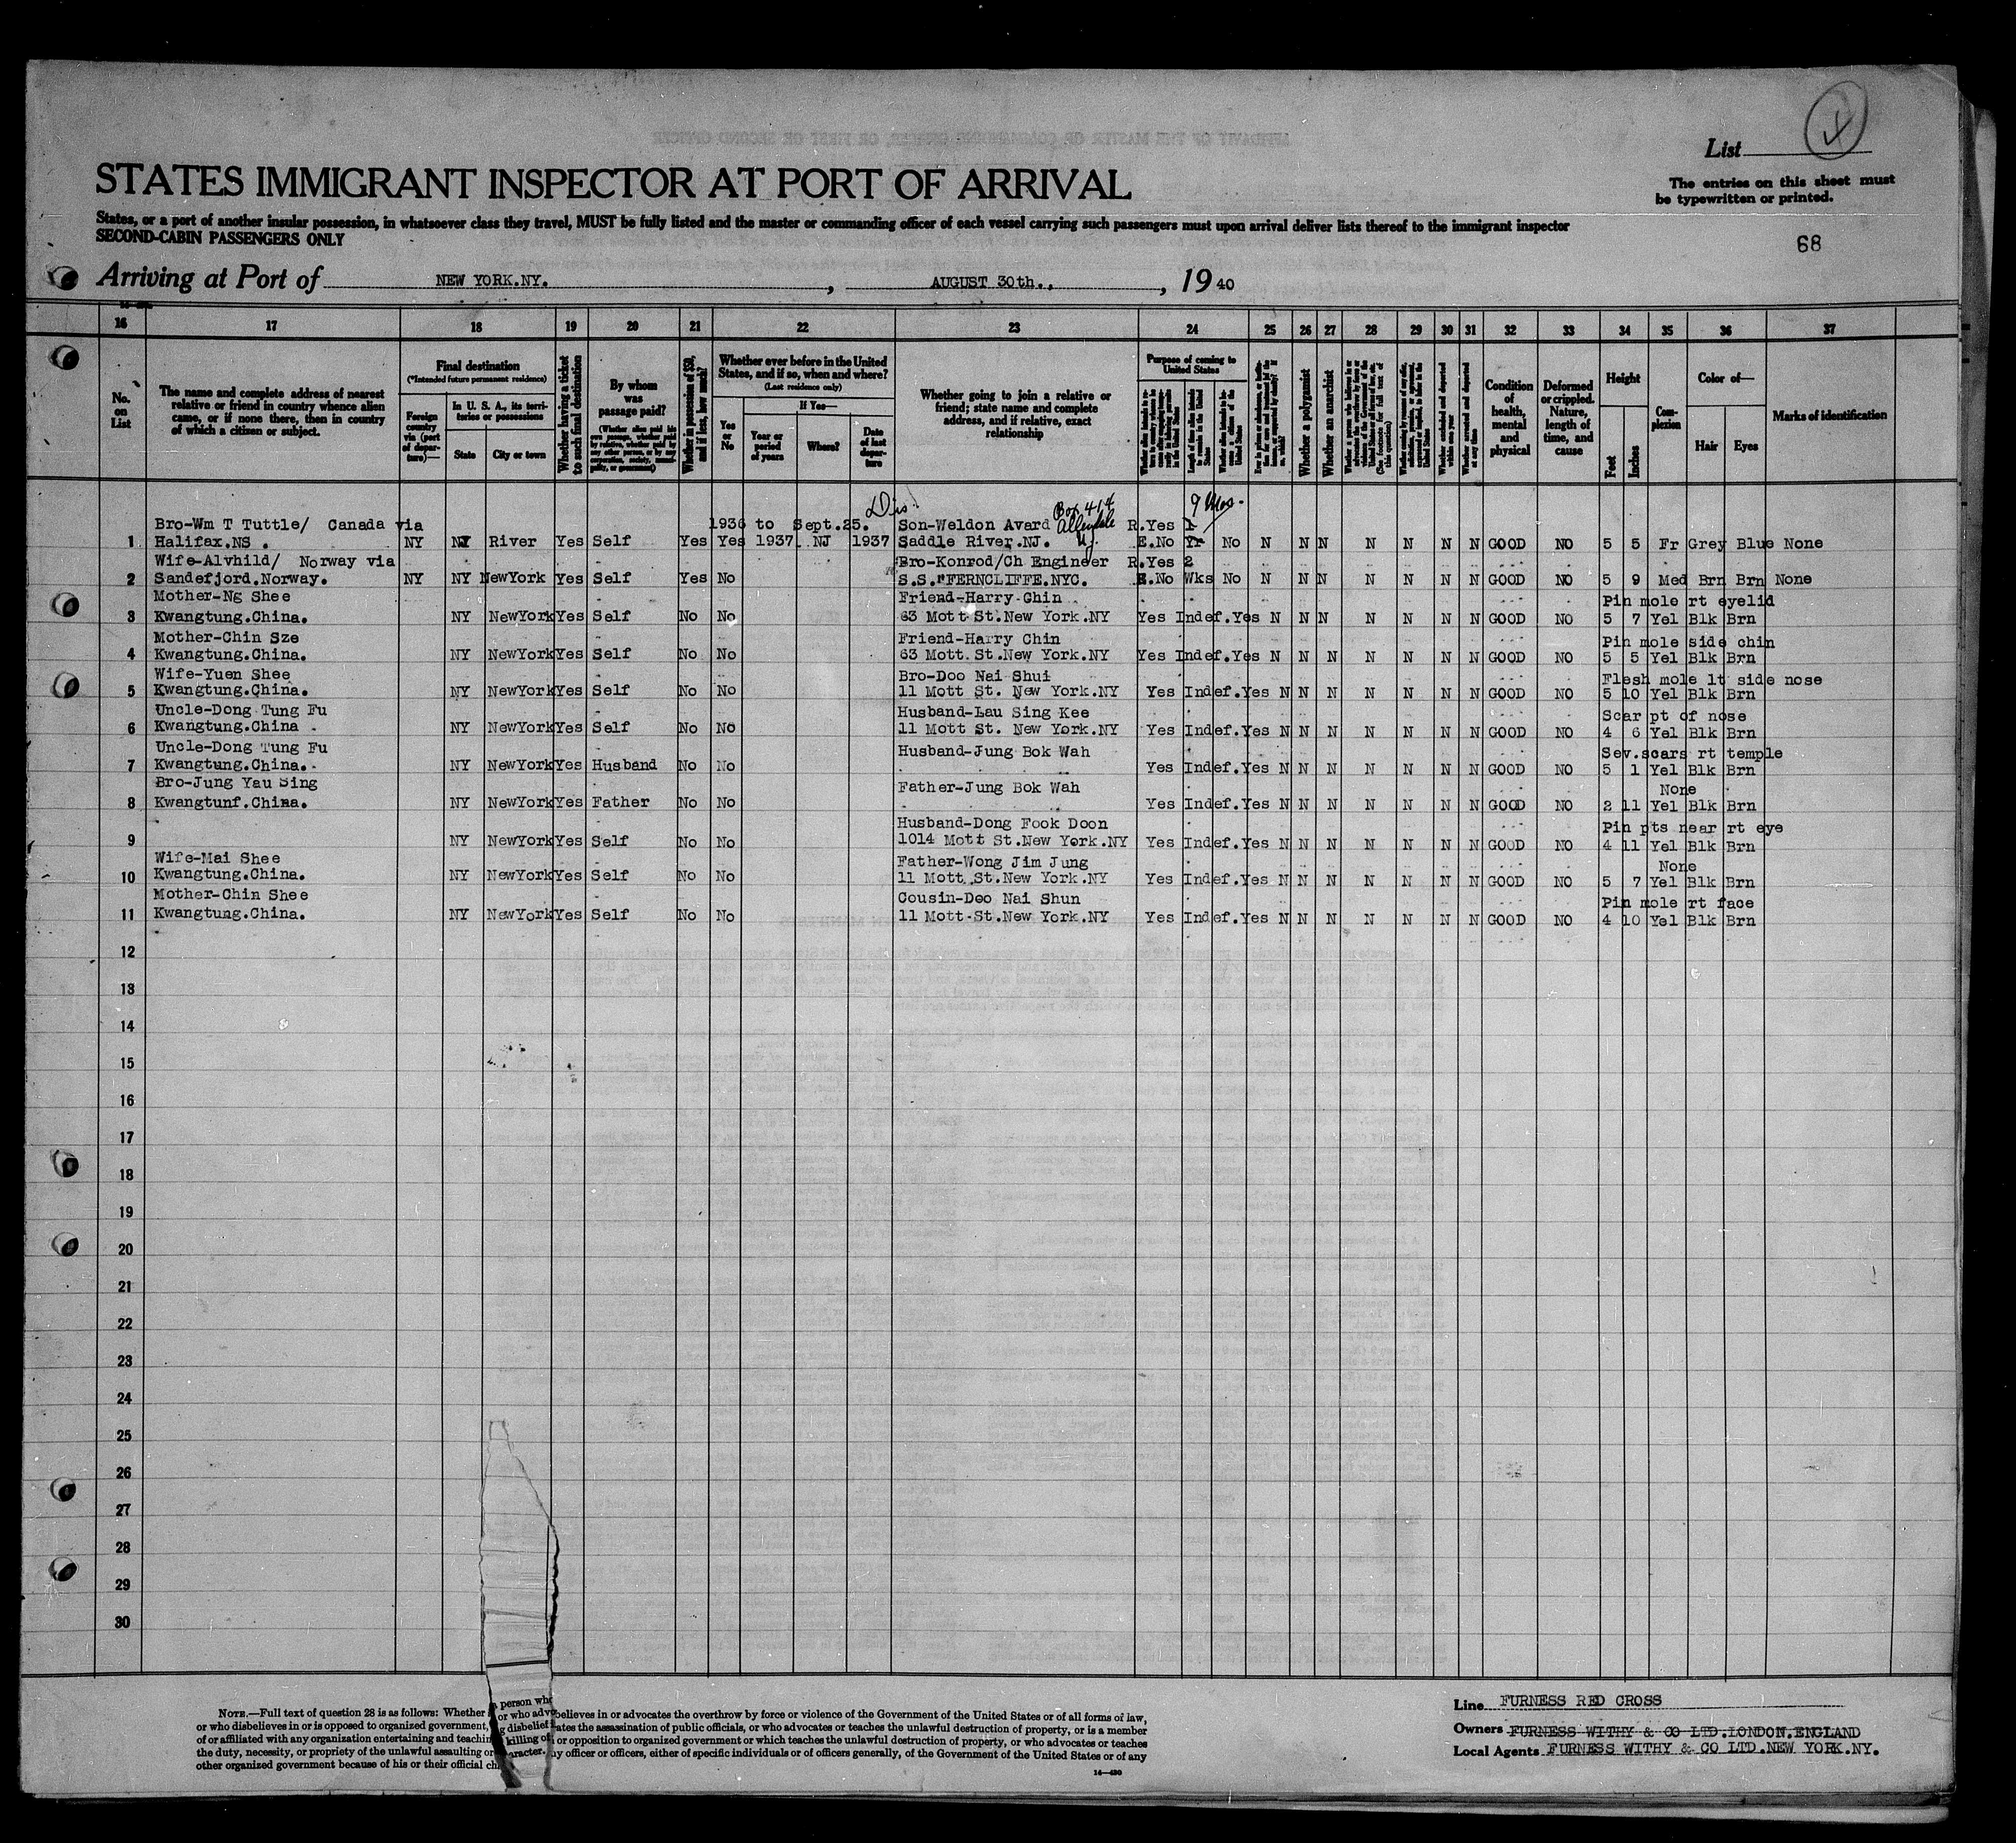 List
The entries on this sheet must
be typewritten or printed.
STATES IMMIGRANT INSPECTOR AT PORT OF ARRIVAL
States, or a port of another insular possession, in whatsoever class they travel, MUST be fully listed and the master or commanding officer of each vessel carrying such passengers must upon arrival deliver lists thereof to the immigrant inspector
SECOND-CABIN PASSENGERS ONLY
68
Arriving at Port of NEW YORK.NY. , AUGUST 30th., , 19 40
16 17 18 19 20 21 22 23 24 25 26 27 28 29 30 31 32 33 34 35 36 37
No. on List
The name and complete address of nearest
relative or friend in country whence alien
came, or if none there, then in country
of which a citizen or subject.
Final destination
(*Intended future permanent residence)
Foreign country via (port of departure)—
In U. S. A., its territories or possessions
State
City or town
Whether having a ticket to such final destination
By whom was passage paid?
Whether in possession of $50, and if less, how much?
Whether ever before in the United
States, and if so, when and where?
(Last residence only)
Yes or No
If Yes—
Year or period of years
Where?
Date of last departure
Whether going to join a relative or
friend; state name and complete
address, and if relative, exact
relationship
Purpose of coming to United States
Whether a polygamist
Whether an anarchist
Condition of health, mental and physical
Deformed or crippled. Nature, length of time, and cause
Height
Feet
Inches
Complexion
Color of—
Hair
Eyes
Marks of identification
Dis. Box 414 9 Mos.
Bro-Wm T Tuttle/ Canada via 1936 to Sept.25. Son-Weldon Avard Allendale R.Yes 1
1 Halifax.NS . NY NJ River Yes Self Yes Yes 1937 NJ 1937 Saddle River.NJ. NJ. E.No Yr No N N N N N N N GOOD NO 5 5 Fr Grey Blue None
Wife-Alvhild/ Norway via Bro-Konrod/Ch Engineer R.Yes 2
2 Sandefjord.Norway. NY NY NewYork Yes Self Yes No S.S."FERNCLIFFE.NYC. E.No Wks No N N N N N N N GOOD NO 5 9 Med Brn Brn None
Mother-Ng Shee Friend-Harry Chin Pin mole rt eyelid
3 Kwangtung.China. NY NewYork Yes Self No No 63 Mott St.New York.NY Yes Indef.Yes N N N N N N N GOOD NO 5 7 Yel Blk Brn
Mother-Chin Sze Friend-Harry Chin Pin mole side chin
4 Kwangtung.China. NY NewYork Yes Self No No 63 Mott.St.New York.NY Yes Indef.Yes N N N N N N N GOOD NO 5 5 Yel Blk Brn
Wife-Yuen Shee Bro-Doo Nai Shui Flesh mole lt side nose
5 Kwangtung.China. NY NewYork Yes Self No No 11 Mott St. New York.NY Yes Indef.Yes N N N N N N N GOOD NO 5 10 Yel Blk Brn
Uncle-Dong Tung Fu Husband-Lau Sing Kee Scar pt of nose
6 Kwangtung.China . NY NewYork Yes Self No No 11 Mott St. New York.NY Yes Indef.Yes N N N N N N N GOOD NO 4 6 Yel Blk Brn
Uncle-Dong Tung Fu Husband-Jung Bok Wah Sev.scars rt temple
7 Kwangtung.China. NY NewYork Yes Husband No No Yes Indef.Yes N N N N N N N GOOD NO 5 1 Yel Blk Brn
Bro-Jung Yau Sing Father-Jung Bok Wah None
8 Kwangtunf.China. NY NewYork Yes Father No No Yes Indef.Yes N N N N N N N GOOD NO 2 11 Yel Blk Brn
Husband-Dong Fook Doon Pin pts near rt eye
9 NY NewYork Yes Self No No 1014 Mott St.New York.NY Yes Indef.Yes N N N N N N N GOOD NO 4 11 Yel Blk Brn
Wife-Mai Shee Father-Wong Jim Jung None
10 Kwangtung.China. NY NewYork Yes Self No No 11 Mott.St.New York.NY Yes Indef.Yes N N N N N N N GOOD NO 5 7 Yel Blk Brn
Mother-Chin Shee Cousin-Doo Nai Shun Pin mole rt face
11 Kwangtung.China. NY NewYork Yes Self No No 11 Mott-St.New York.NY Yes Indef.Yes N N N N N N N GOOD NO 4 10 Yel Blk Brn
12
13
14
15
16
17
18
19
20
21
22
23
24
25
26
27
28
29
30
NOTE.—Full text of question 28 is as follows: Whether a person who believes in or advocates the overthrow by force or violence of the Government of the United States or of all forms of law,
or who disbelieves in or is opposed to organized government, or who advocates the assassination of public officials, or who advocates or teaches the unlawful destruction of property, or is a member
of or affiliated with any organization entertaining and teaching disbelief in or opposition to organized government or which teaches the unlawful destruction of property, or who advocates or teaches
the duty, necessity, or propriety of the unlawful assaulting or killing of any officer or officers, either of specific individuals or of officers generally, of the Government of the United States or of any
other organized government because of his or their official character.
14—430
Line FURNESS RED CROSS
Owners FURNESS WITHY & CO LTD.LONDON.ENGLAND
Local Agents FURNESS WITHY & CO LTD.NEW YORK.NY.